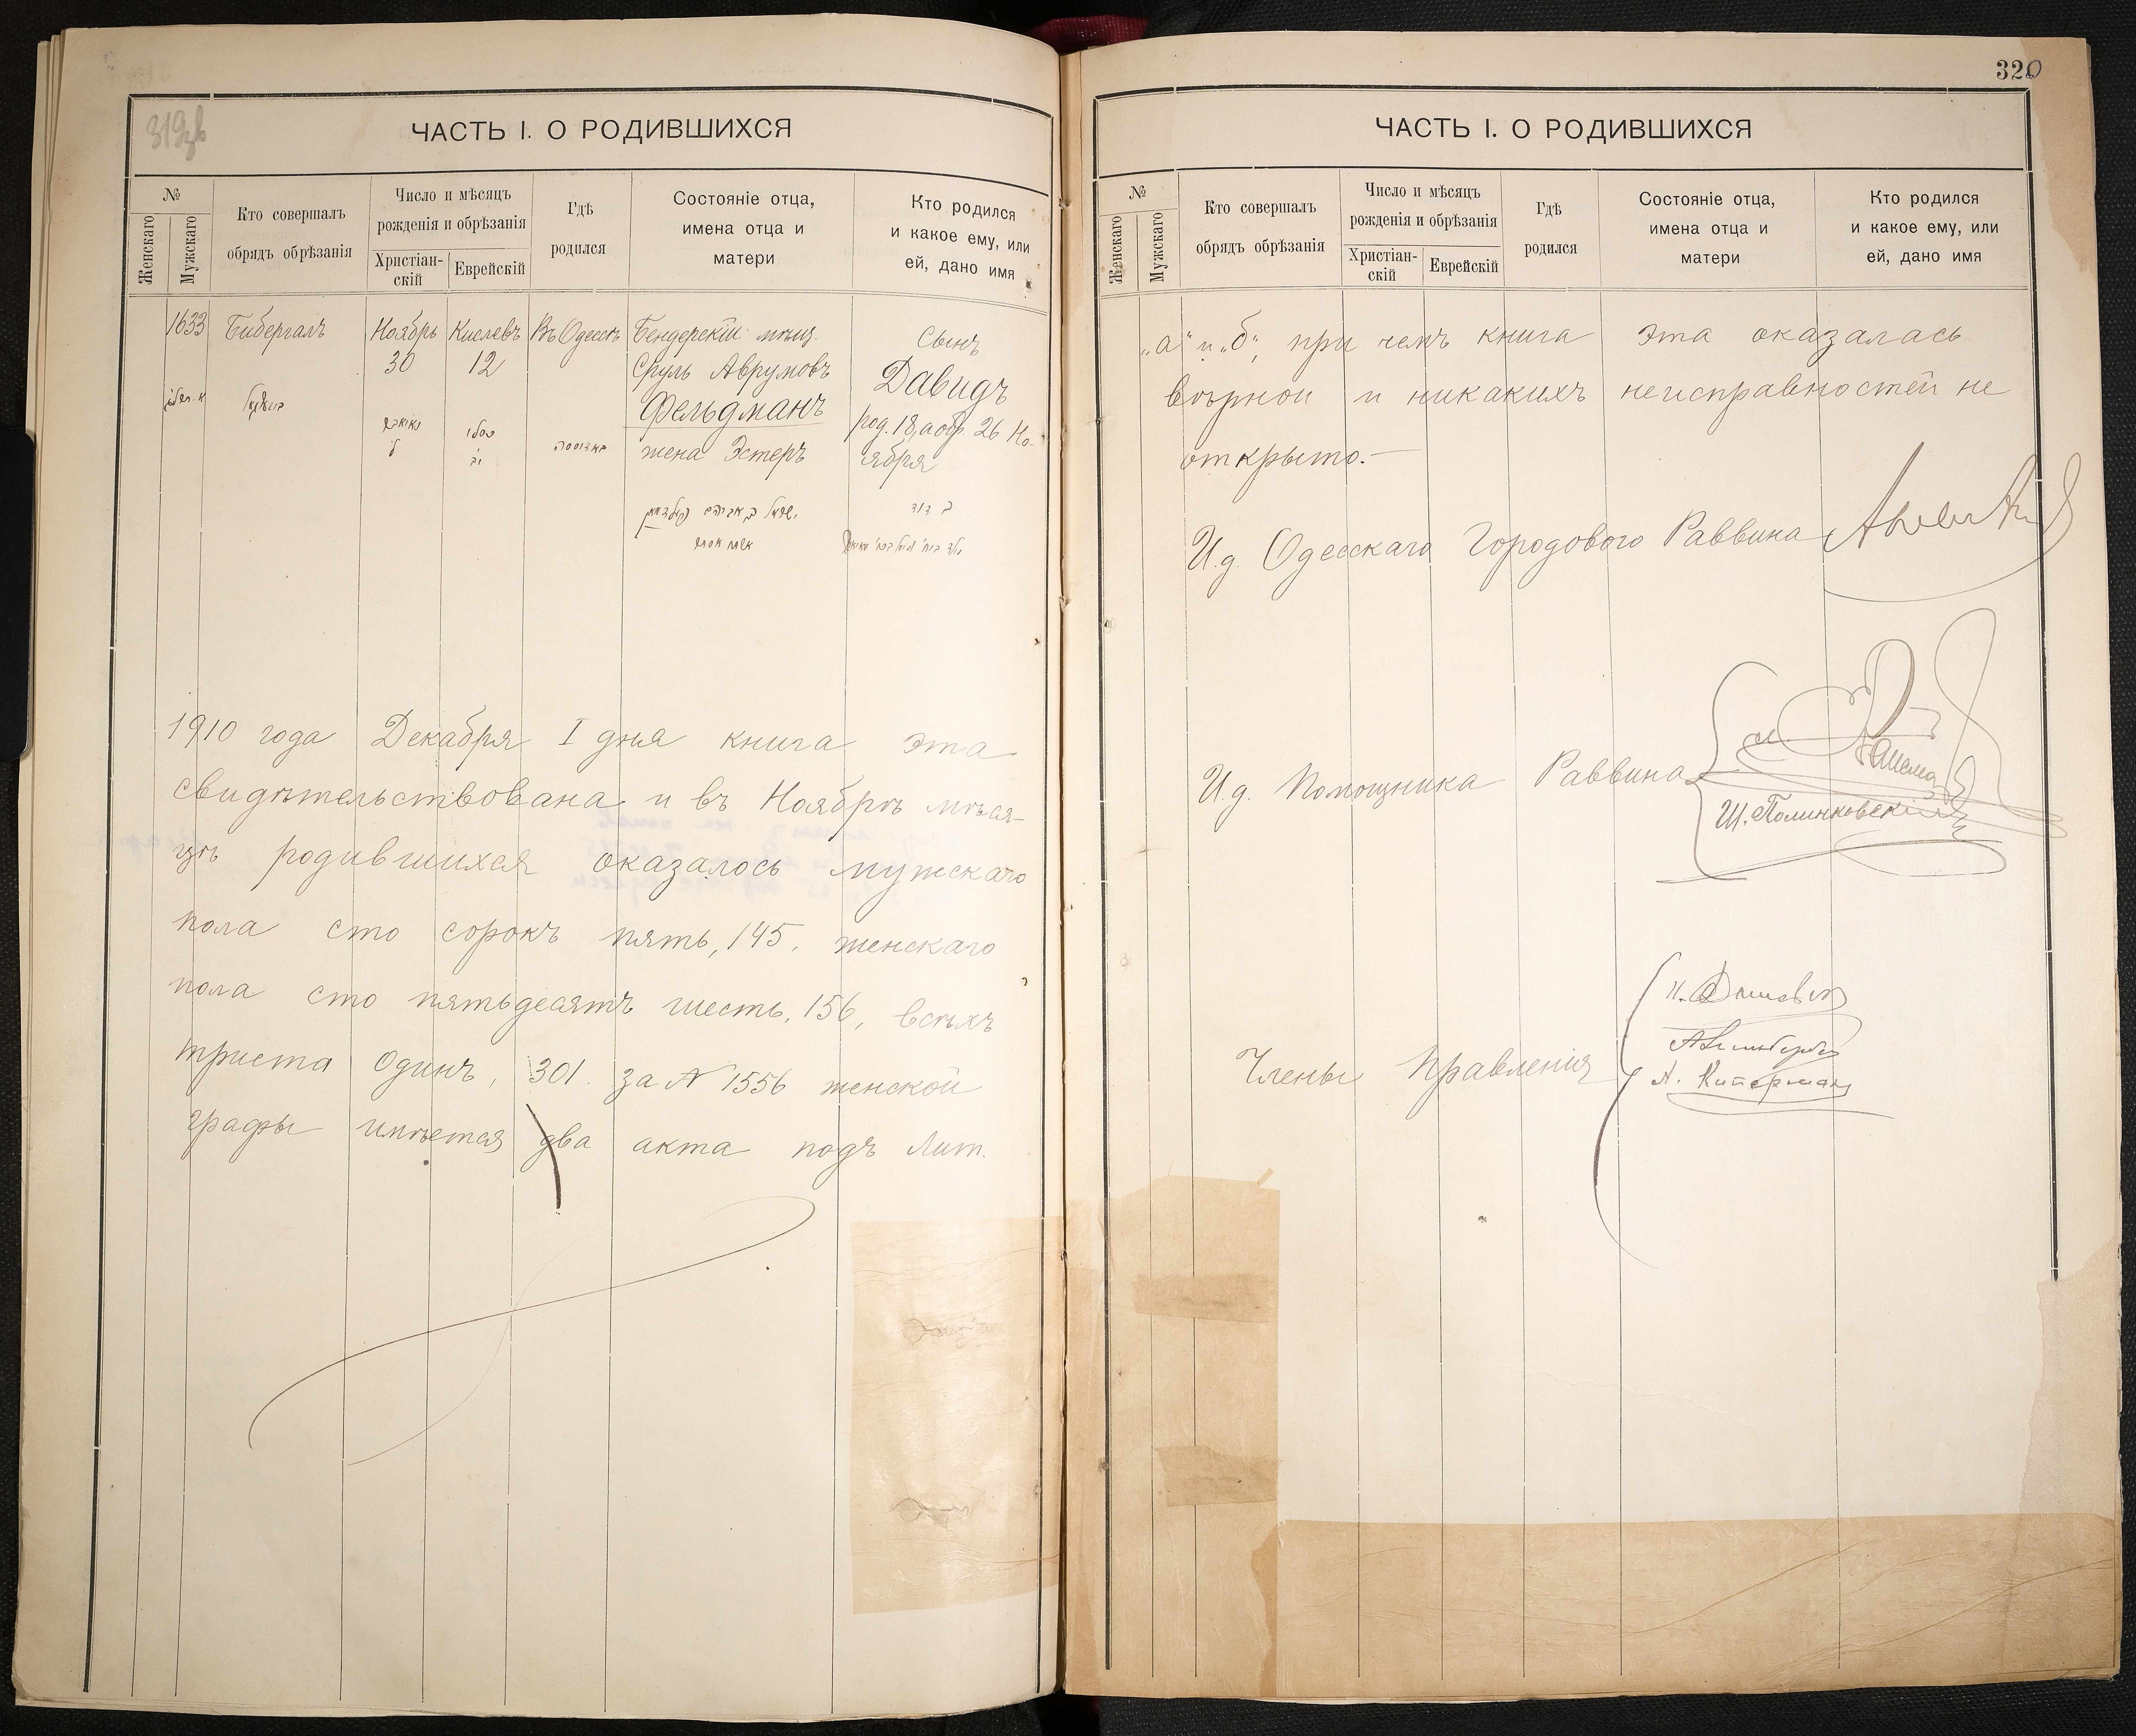 319об
ЧАСТЬ I. О РОДИВШИХСЯ
№
Женскаго
Мужскаго
Кто совершалъ
обрядъ обрѣзанія
Число и мѣсяцъ
рожденія и обрѣзанія
Христіан-
скій
Еврейскій
Гдѣ
родился
Состояніе отца,
имена отца и
матери
Кто родился
и какое ему, или
ей, дано имя
1633
Бибергалъ
Ноябрь
30
Кислевъ
12
Въ Одессѣ
Бендерскій мѣщ.
Сруль Аврумовъ
Фельдманъ
жена Эстеръ
Сынъ
Давидъ
род. 18, а обр. 26 Но-
ября
ביבערגאל
ל
כסלו
יב
באדעססא
ישראל בן אברהם פעלדמאן
אשתו אסתר
בן דוד
1910 года Декабря I дня книга эта
свидѣтельствована и въ Ноябрѣ мѣся-
цѣ родившихся оказалось мужскаго
пола сто сорокъ пять, 145, женскаго
пола сто пятьдесятъ шесть, 156, всѣхъ
триста одинъ, 301. за № 1556 женской
графы имѣется два акта подъ Лит.
320
ЧАСТЬ I. О РОДИВШИХСЯ
№
Женскаго
Мужскаго
Кто совершалъ
обрядъ обрѣзанія
Число и мѣсяцъ
рожденія и обрѣзанія
Христіан-
скій
Еврейскій
Гдѣ
родился
Состояніе отца,
имена отца и
матери
Кто родился
и какое ему, или
ей, дано имя
„а“ и „б“, при чемъ книга эта оказалась
вѣрной и никакихъ неисправностей не
открыто.—
И.д. Одесскаго Городового Раввина
И.д. Помощника Раввина
Ш. Полинковскій
Члены Правленія
А. Киперман